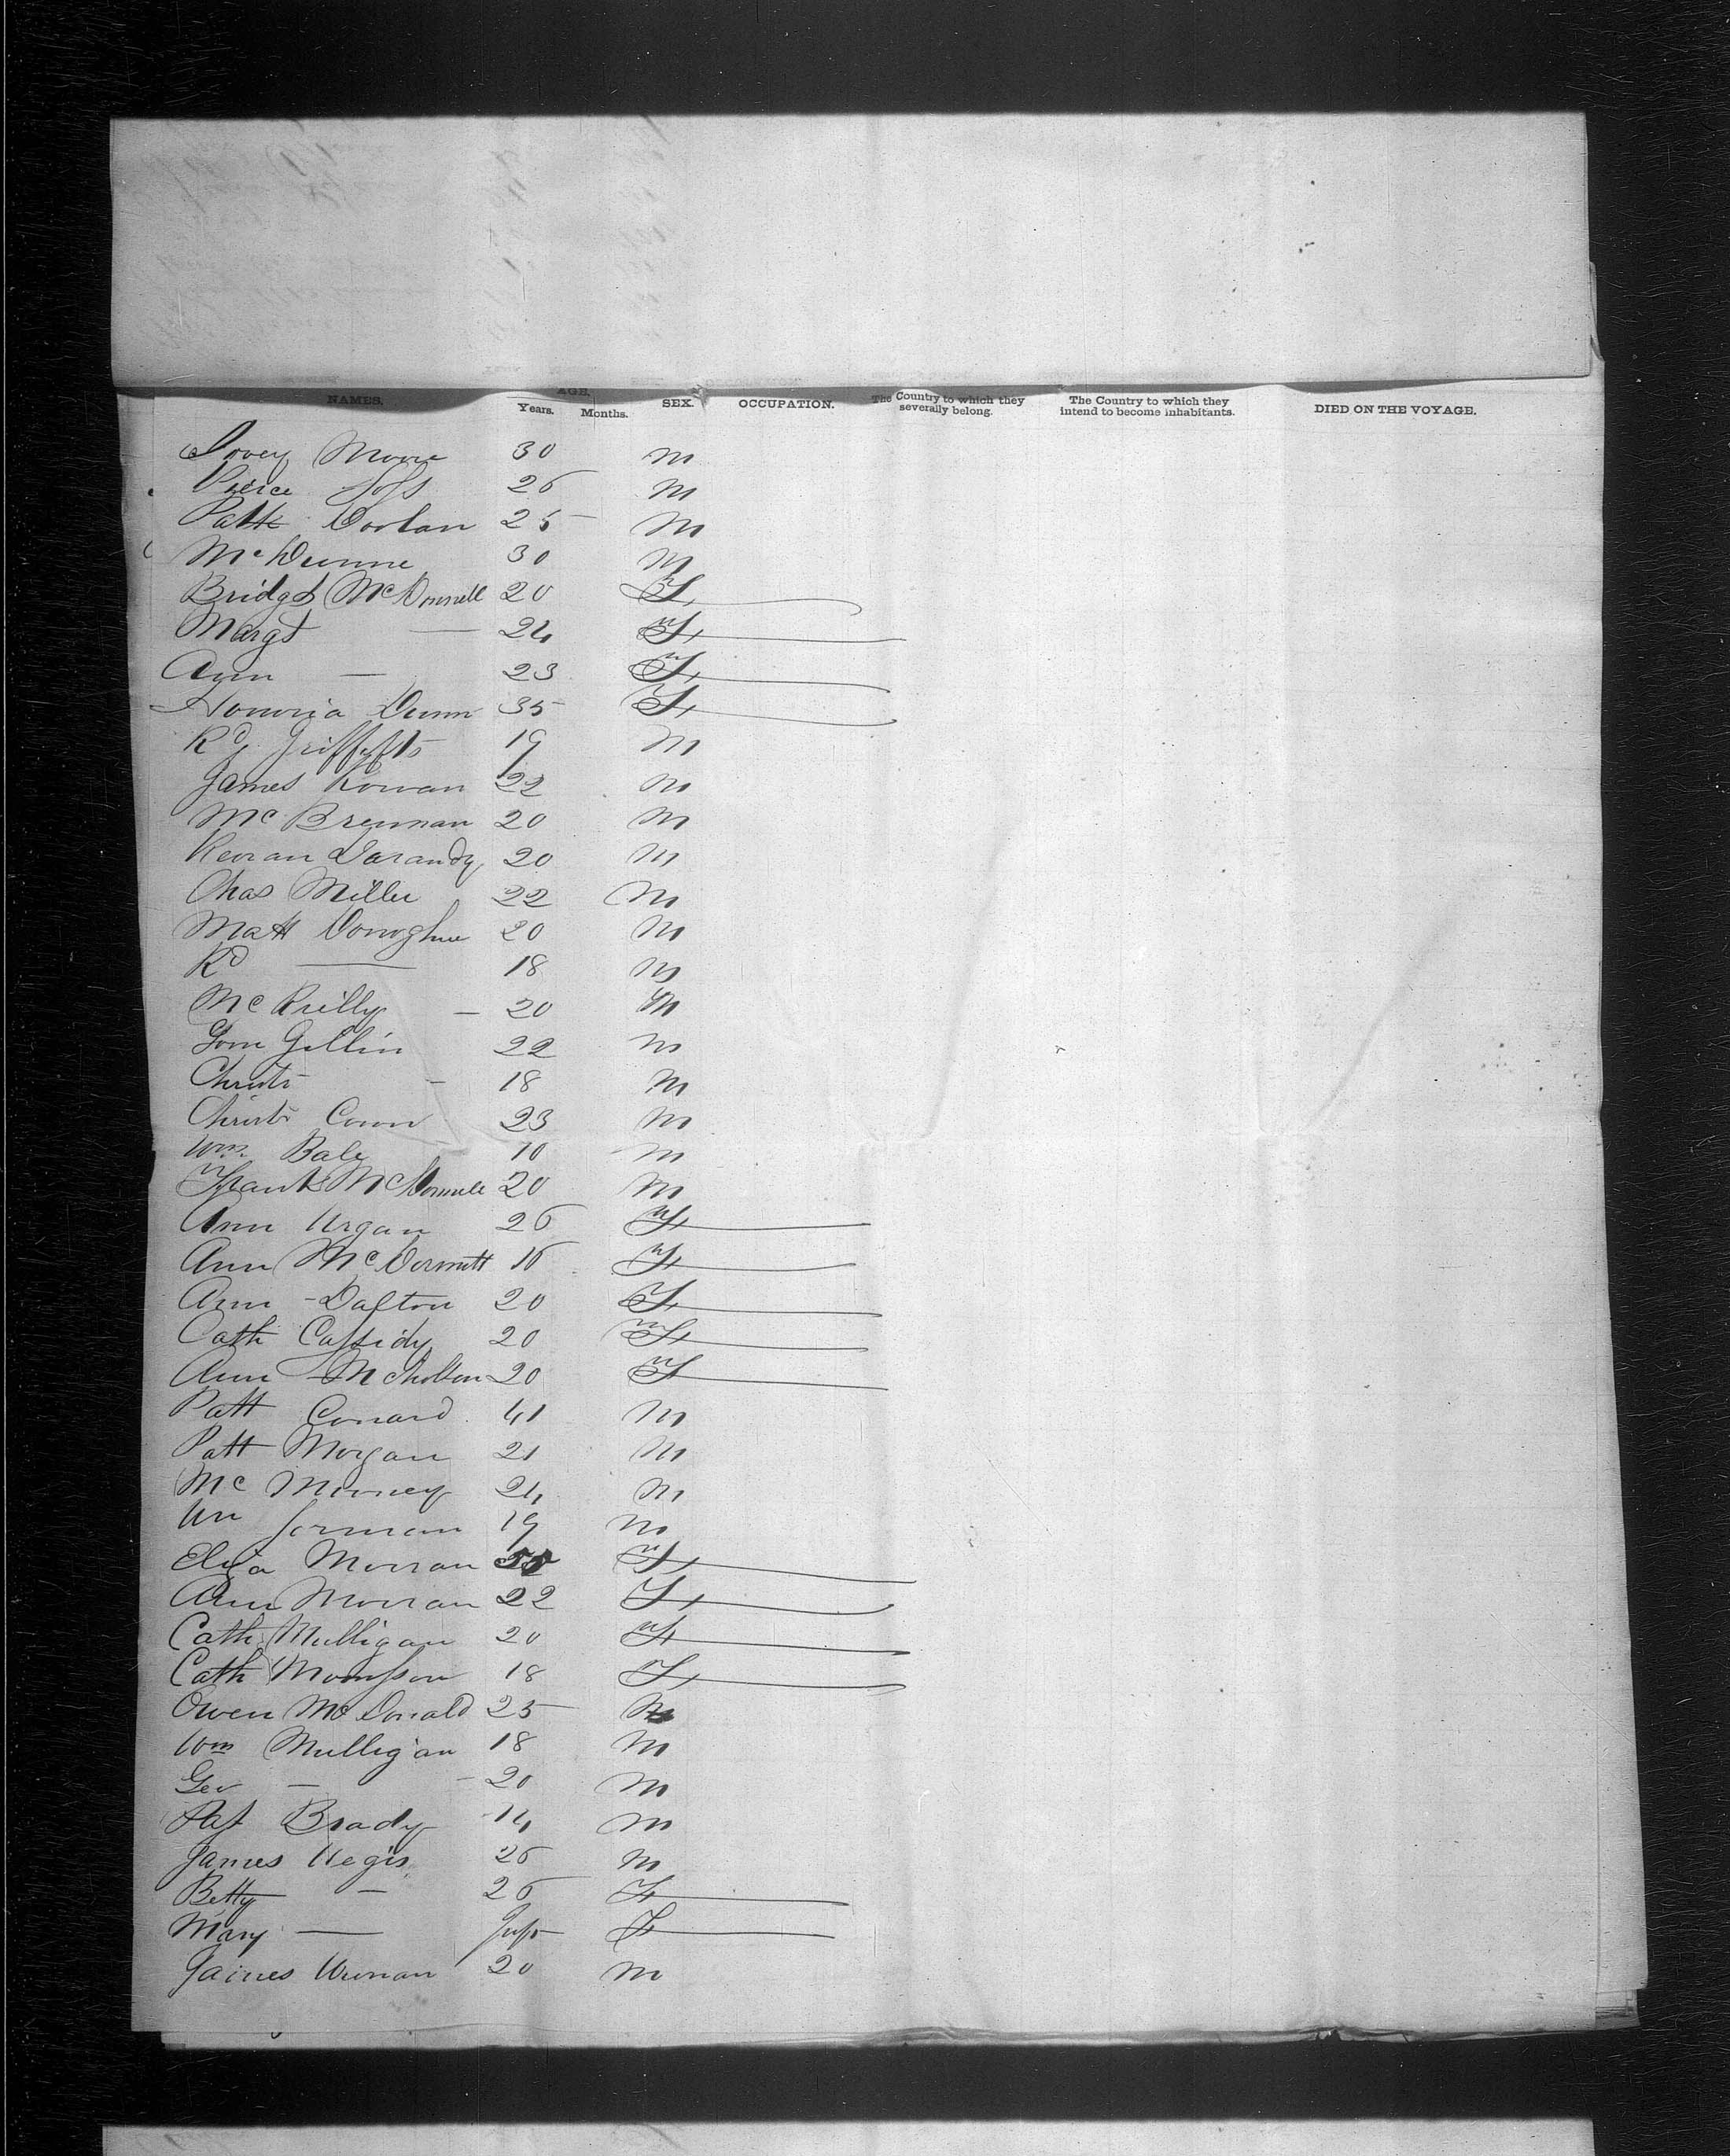 NAMES. AGE. Years. Months. SEX. OCCUPATION. The Country to which they severally belong. The Country to which they intend to become inhabitants. DIED ON THE VOYAGE.
Moore 30 M
Pierce 26 M
Patk Doolan 25 M
Mc Dunne 30 M
Bridget McDonnell 20 F
Margt — 24 F
Ann — 23 F
Honoria Dunn 35 F
Rd Griffiths 19 M
James Rowan 22 M
Mc Brennan 20 M
Keoran 20 M
Chas Miller 22 M
Matt Donoghue 20 M
Rd — 18 M
Mc Reilly — 20 M
Tom Gillin 22 M
Christr — 18 M
Christr Conn 23 M
Wm Baly 10 M
Frank McDonnell 20 M
Ann 26 F
Ann McDermott 16 F
Ann Dalton 20 F
Cath Cassidy 20 F
Ann 20 F
Patt Conard 41 M
Patt Morgan 21 M
Mc Mooney 24 M
Wm Jorman 19 M
Eliza Morran F
Ann Morran 22 F
Cath Mulligan 20 F
Cath 18 F
Owen McDonald 25 M
Wm Mulligan 18 M
Geo — 20 M
Pat Brady 14 M
James Hegis 26 M
Betty — 26 F
Mary — Inft F
James 20 M